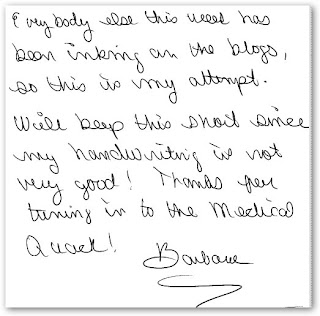 Everybody else this week has
been inking on the blogs,
so this is my attempt.
Will keep this short since
my handwriting is not
very good! Thanks for
tuning in to the Medical
Quack!
Barbara